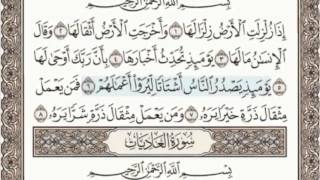 بِسْمِ ٱللَّهِ ٱلرَّحْمَٰنِ ٱلرَّحِيمِ
إِذَا زُلْزِلَتِ ٱلْأَرْضُ زِلْزَالَهَا ١ وَأَخْرَجَتِ ٱلْأَرْضُ أَثْقَالَهَا ٢ وَقَالَ
ٱلْإِنسَٰنُ مَا لَهَا ٣ يَوْمَئِذٍ تُحَدِّثُ أَخْبَارَهَا ٤ بِأَنَّ رَبَّكَ أَوْحَىٰ لَهَا
٥ يَوْمَئِذٍ يَصْدُرُ ٱلنَّاسُ أَشْتَاتًا لِّيُرَوْا۟ أَعْمَٰلَهُمْ ٦ فَمَن يَعْمَلْ
مِثْقَالَ ذَرَّةٍ خَيْرًا يَرَهُۥ ٧ وَمَن يَعْمَلْ مِثْقَالَ ذَرَّةٍ شَرًّا يَرَهُۥ ٨
سُورَةُ ٱلْعَادِيَاتِ
بِسْمِ ٱللَّهِ ٱلرَّحْمَٰنِ ٱلرَّحِيمِ